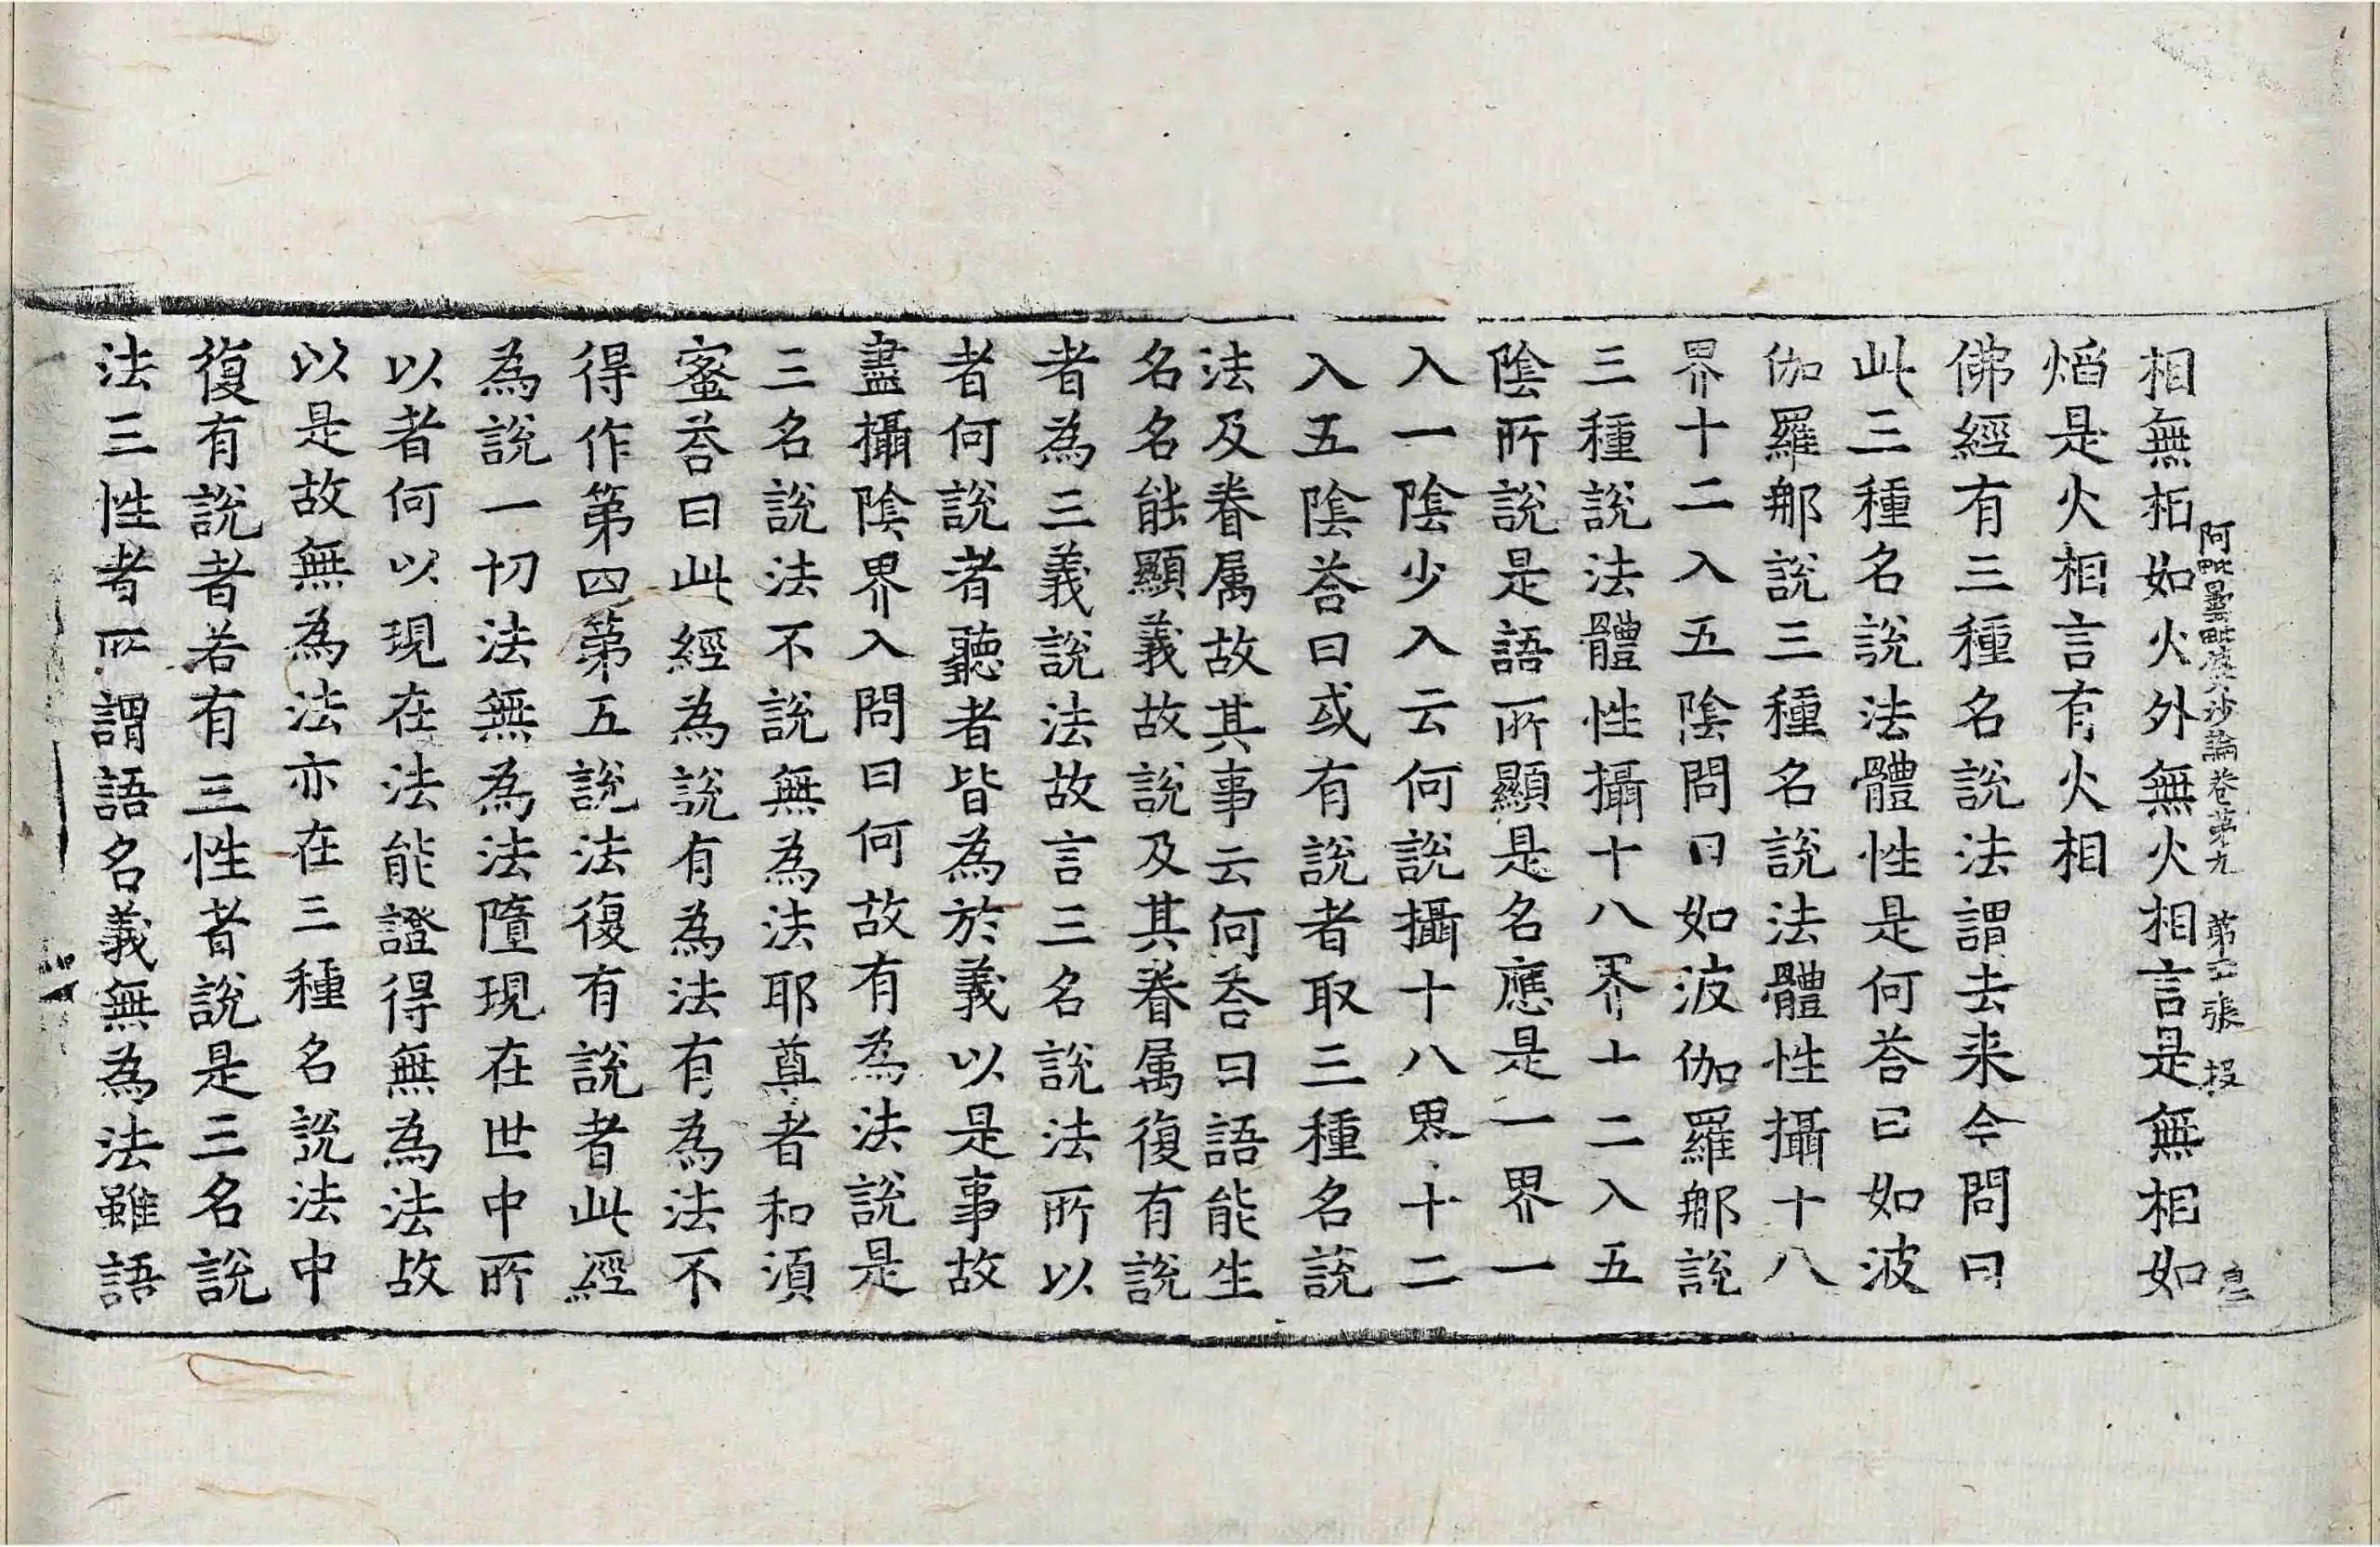 阿毗曇毗婆沙論卷第九　第　張
相無相如火外無火相言是無相如
熖是火相言有火相
佛經有三種名說法謂去来今問曰
此三種名說法體性是何荅曰如波
伽羅那說三種名說法體性攝十八
界十二入五陰問曰如波伽羅那說
三種說法體性攝十八界十二入五
陰所說是語所顯是名應是一界一
入一陰少入云何說攝十八界十二
入五陰荅曰或有說者取三種名說
法及眷属故其事云何荅曰語能生
名名能顯義故說及其眷属復有說
者為三義說法故言三名說法所以
者何說者聽者皆為於義以是事故
盡攝陰界入問曰何故有為法說是
三名說法不說無為法耶尊者和須
蜜荅曰此經為說有為法有為法不
得作第四第五說法復有說者此經
為說一切法無為法墮現在世中所
以者何以現在法能證得無為法故
以是故無為法亦在三種名說法中
復有說者若有三性者說是三名說
法三性者所謂語名義無為法雖語